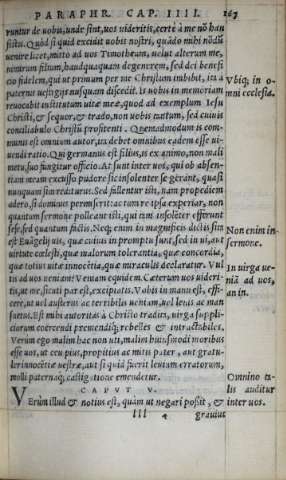 PARAPHR. CAP. IIII. 267
runtur de uobis, unde sint, uos uideritis, certè à me nõ han
sistis. Quod si quid excidit uobis nostri, quãdo mihi nõdũ
uenire licet, mitto ad uos Timotheum, uelut alterum me,
nimirum filium, haudquaquam degenerem, sed dei benefi
cio fidelem, qui ut primum per me Christum imbibit, ita à
paternis uestigijs nusquam discedit. Is uobis in memoriam
reuocabit institutum uitæ meæ, quod ad exemplum Iesu
Christi, & sequor, & trado, non uobis tantum, sed cuiuis
conciliabulo Christũ profitenti. Quemadmodum is com-
munis est omnium autor, ita debet omnibus eadem esse ui-
uendi ratio. Qui germanus est filius, is ex animo, non mali
metu, suo fungitur officio. At sunt inter uos, qui ob absen-
tiam meam excusso pudore sic insolenter se gerant, quasi
nunquam sim rediturus. Sed fallentur isti, nam propediem
adero, si dominus permiserit: ac tum re ipsa experiar, non
quantum sermone polleant isti, qui tam insolẽter efferunt
sese, sed quantum factis. Neq; enim in magnificis dictis sita
est Euãgelij uis, quæ cuiuis in promptu sunt, sed in ui, aut
uirtute cœlesti, quæ malorum tolerantia, quæ concordia,
quæ totius uitæ innocẽtia, quæ miraculis declaratur. Vul
tis ad uos ueniam? Veniam equidem. Cæterum uos uideri-
tis, ut me, sicuti par est, excipiatis. Vobis in manu est, effi-
cere, ut uel austerus ac terribilis ueniam, uel lenis ac man
suetus. Est mihi autoritas à Christo tradita, uirga supplici-
daorum coërcendi premendiq; rebelles & intractabiles.
Verum ego malim hac non uti, malim huiusmodi moribus
esse uos, ut ceu pius, propitius ac mitis pater, aut gratu-
ler innocẽtiæ uestræ, aut si quid fuerit leuium erratorum,
molli paternaq; castigatione emendetur.
CAPVT V.
VErùm illud & notius est, quàm ut negari possit, &
III 4 grauius
Vbiq; in o-
mni ecclesia.
Non enim in
sermone.
In uirga ue-
niã ad uos,
an in.
Omnino ta-
lis auditur
inter uos.